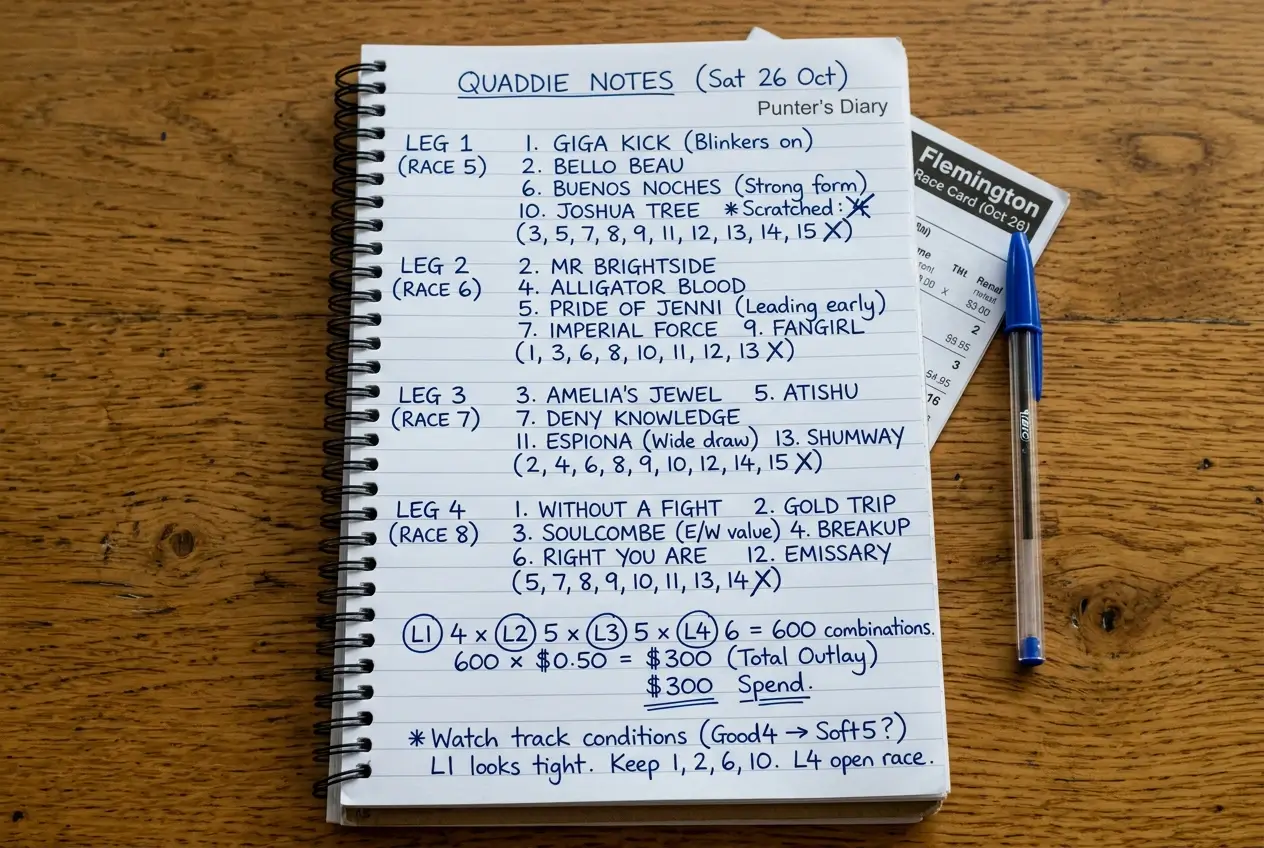 QUADDIE NOTES (Sat 26 Oct)
Punter's Diary
LEG 1 1. GIGA KICK (Blinkers on)
(RACE 5) 2. BELLO BEAU
6. BUENOS NOCHES (Strong form)
10. JOSHUA TREE *Scratched:
(3, 5, 7, 8, 9, 11, 12, 13, 14, 15 X)
LEG 2 2. MR BRIGHTSIDE
(RACE 6) 4. ALLIGATOR BLOOD
5. PRIDE OF JENNI (Leading early)
7. IMPERIAL FORCE 9. FANGIRL
(1, 3, 6, 8, 10, 11, 12, 13 X)
LEG 3 3. AMELIA'S JEWEL 5. ATISHU
(RACE 7) 7. DENY KNOWLEDGE
11. ESPIONA (Wide draw) 13. SHUMWAY
(2, 4, 6, 8, 9, 10, 12, 14, 15 X)
LEG 4 1. WITHOUT A FIGHT 2. GOLD TRIP
(RACE 8) 3. SOULCOMBE (E/W value) 4. BREAKUP
6. RIGHT YOU ARE 12. EMISSARY
(5, 7, 8, 9, 10, 11, 13, 14 X)
L1 4 x L2 5 x L3 5 x L4 6 = 600 combinations.
600 x $0.50 = $300 (Total Outlay)
$300 Spend.
*Watch track conditions (Good4 → Soft5?)
L1 looks tight. Keep 1, 2, 6, 10. L4 open race.
Flemington
Race Card (Oct 26)
$3.00
2
3
16